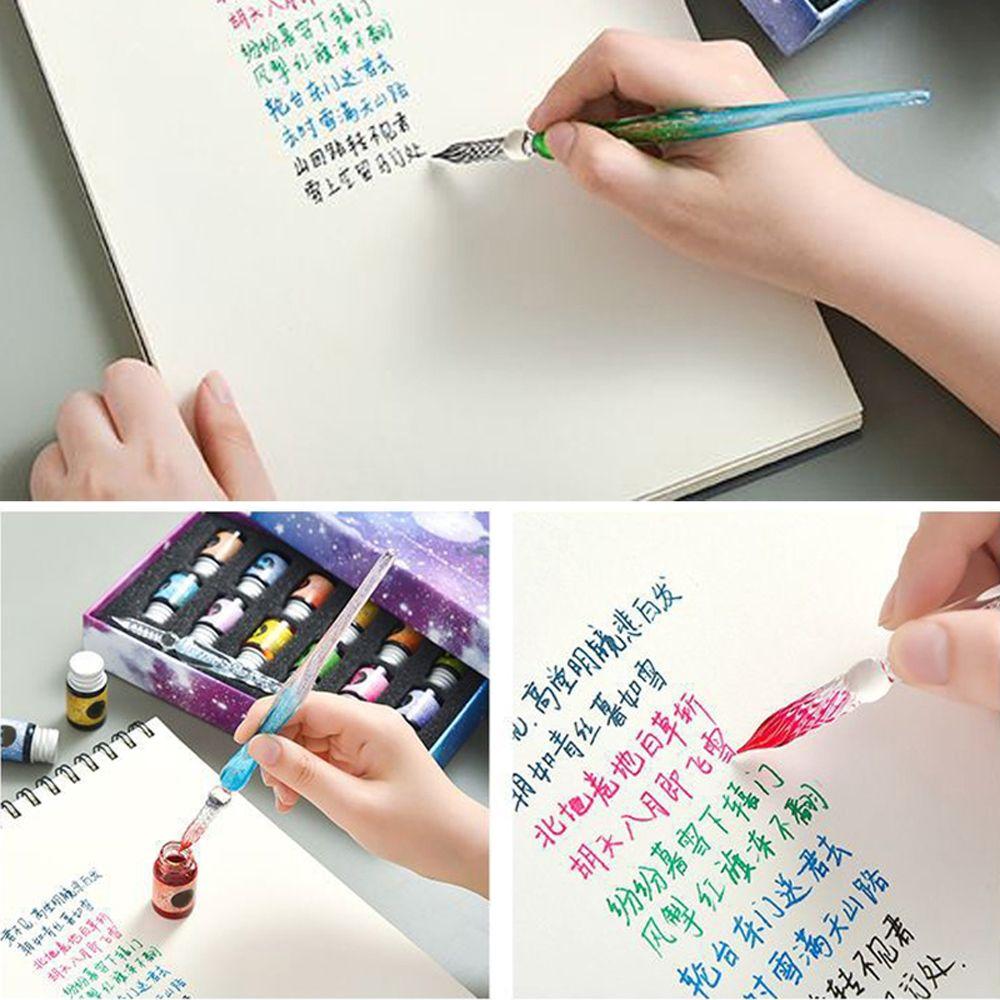 胡天八月即飞雪
纷纷暮雪下辕门
风掣红旗冻不翻
轮台东门送君去
去时雪满天山路
山回路转不见君
雪上空留马行处
君不见,高堂明镜悲白发
朝如青丝暮如雪
北地卷地白草折
胡天八月即飞雪
纷纷暮雪下辕门
高堂明镜悲白发
朝如青丝暮如雪
北地卷地白草折
胡天八月即飞雪
纷纷暮雪下辕门
风掣红旗冻不翻
轮台东门送君去
时雪满天山路
转不见君
行处.